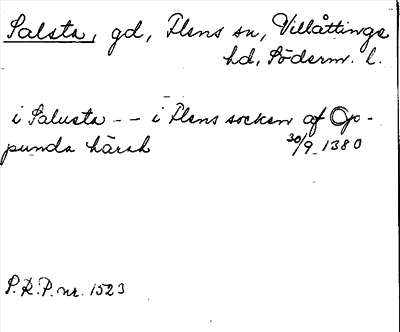 Salsta, gd, Flens sn, Villåttinge
hd, Söderm. l.
i Salusta -- i Flens socken af Op-
punda härah
30/9 1380
P.R.P. nr. 1523